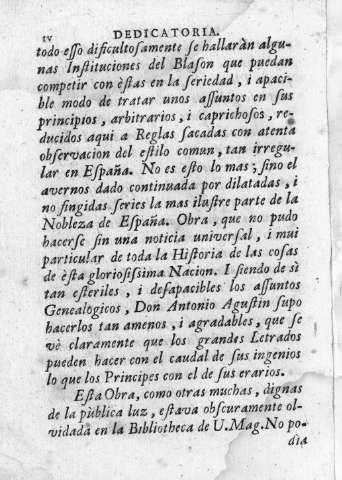 IV DEDICATORIA.
todo eſſo dificultoſamente ſe hallaràn algu-
nas Inſtituciones del Blaſon que puedan
competir con èſtas en la ſeriedad, i apaci-
ble modo de tratar unos aſſuntos en ſus
principios, arbitrarios, i caprichoſos, re-
ducidos aqui a Reglas ſacadas con atenta
obſervacion del eſtilo comun, tan irregu-
lar en Eſpaña. No es eſto lo mas; ſino el
avernos dado continuada por dilatadas, i
no fingidas ſeries la mas iluſtre parte de la
Nobleza de Eſpaña. Obra, que no pudo
hacerſe ſin una noticia univerſal, i mui
particular de toda la Hiſtoria de las coſas
de èſta glorioſiſsima Nacion. I ſiendo de sì
tan eſteriles, i deſapacibles los aſſuntos
Genealogicos, Don Antonio Aguſtin ſupo
hacerlos tan amenos, i agradables, que ſe
vè claramente que los grandes Letrados
pueden hacer con el caudal de ſus ingenios
lo que los Principes con el de ſus erarios.
Eſta Obra, como otras muchas, dignas
de la pùblica luz, eſtava obſcuramente ol-
vidada en la Bibliotheca de U. Mag. No po-
dia